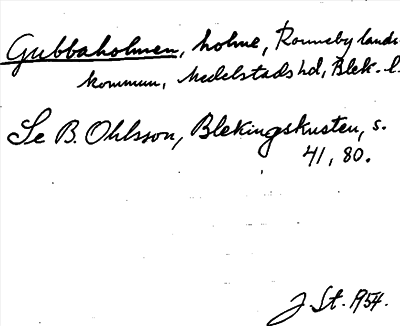 Gubbaholmen, holme, Ronneby lands
kommun, Medelstads hd, Blek. l.
Se B. Ohlsson, Blekingskusten, s.
41, 80.
J. St. 1954.